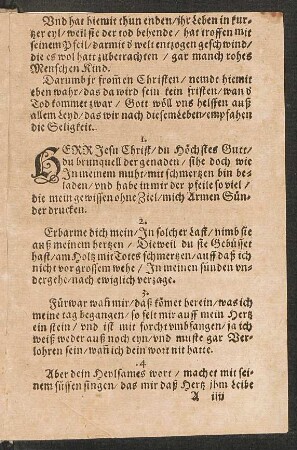 Vnd hat hiemit thun enden / jhr Leben in kur-
tzer eyl / weil sie der tod behende / hat troffen mit
seinem Pfeil / darmit ď welt entzogen geschwind /
die es wol hatt zubetrachten / gar manch rohes
Menschen Kind.
Darumb jr from̃en Christen / nemdt hiemit
eben wahr / das da wird sein kein fristen / wan ď
Tod kommet zwar / Gott wöll vns helffen auß
allem Leyd / das wir nach diesem Leben / empfahen
die Seligkeit.
1.
HERR Jesu Christ / du Höchstes Gutt /
du brunquell der genaden / sihe doch wie
Jn meinem muht / mit schmertzen bin be-
laden / vnd habe in mir der pfeile so viel /
die mein gewissen ohne Ziel / mich Armen Sün-
der drucken.
2.
Erbarme dich mein / Jn solcher Last / nimb sie
auß meinem hertzen / Dieweil du sie Gebüsset
hast / am Holtz mit Totes schmertzen / auff daß ich
nicht vor grossem wehe / Jn meinen sünden vn-
dergehe / nach ewiglich verzage.
3.
Fürwar wañ mir / daß kömet herein / was ich
meine tag begangen / so felt mir auff mein Hertz
ein stein / vnd ist mit forcht vmbfangen / ja ich
weiß weder auß noch eyn / vnd muste gar Ver-
lohren sein / wañ ich dein wort nit hatte.
.4
Aber dein Heylsames wort / machet mit sei-
nem süssen singen / das mir daß Hertz jhm Leibe
A iiij